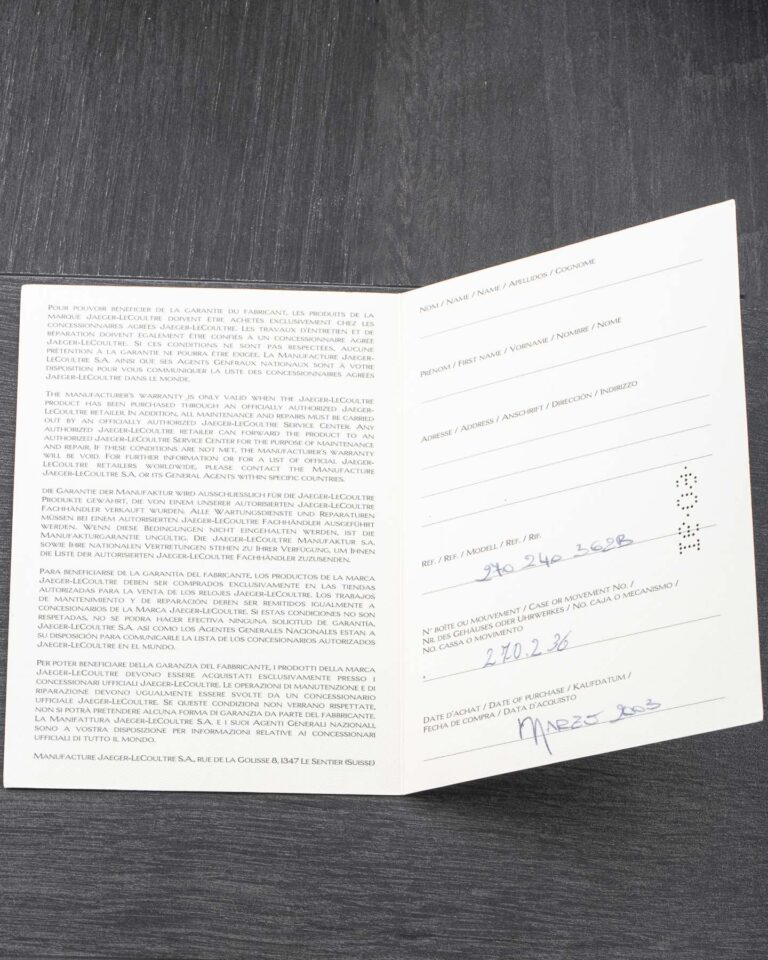 Pour pouvoir bénéficier de la garantie du fabricant, les produits de la
marque Jaeger-LeCoultre doivent être achetés exclusivement chez les
concessionnaires agréés Jaeger-LeCoultre. Les travaux d'entretien et de
réparation doivent également être confiés à un concessionnaire agréé
Jaeger-LeCoultre. Si ces conditions ne sont pas respectées, aucune
prétention à la garantie ne pourra être exigée. La Manufacture Jaeger-
LeCoultre S.A. ainsi que ses Agents Généraux nationaux sont à votre
disposition pour vous communiquer la liste des concessionnaires agréés
Jaeger-LeCoultre dans le monde.
The manufacturer's warranty is only valid when the Jaeger-LeCoultre
product has been purchased through an officially authorized Jaeger-
LeCoultre retailer. In addition, all maintenance and repairs must be carried
out by an officially authorized Jaeger-LeCoultre Service Center. Any
authorized Jaeger-LeCoultre retailer can forward the product to an
authorized Jaeger-LeCoultre Service Center for the purpose of maintenance
and repair. If these conditions are not met, the manufacturer's warranty
will be void. For further information or for a list of official Jaeger-
LeCoultre retailers worldwide, please contact the Manufacture
Jaeger-LeCoultre S.A. or its General Agents within specific countries.
die Garantie der Manufaktur wird ausschliesslich für die Jaeger-LeCoultre
Produkte gewährt, die von einem unserer autorisierten Jaeger-LeCoultre
Fachhändler verkauft wurden. Alle Wartungsdienste und Reparaturen
müssen bei einem autorisierten Jaeger-LeCoultre Fachhändler ausgeführt
werden. Wenn diese Bedingungen nicht eingehalten werden, ist die
Manufakturgarantie ungültig. Die Jaeger-LeCoultre Manufaktur s.a.
sowie ihre nationalen Vertretungen stehen zu Ihrer Verfügung, um Ihnen
die Liste der autorisierten Jaeger-LeCoultre Fachhändler zuzusenden.
Para beneficiarse de la garantía del fabricante, los productos de la marca
Jaeger-LeCoultre deben ser comprados exclusivamente en las tiendas
autorizadas para la venta de los relojes Jaeger-LeCoultre. Los trabajos
de mantenimiento y de reparación deben ser remitidos igualmente a
concesionarios de la Marca Jaeger-LeCoultre. Si estas condiciones no son
respetadas, no se podra hacer efectiva ninguna solicitud de garantía,
Jaeger-LeCoultre S.A. asi como los Agentes Generales Nacionales estan a
su disposición para comunicarle la lista de los concesionarios autorizados
Jaeger-LeCoultre en el mundo.
Per poter beneficiare della garanzia del fabbricante, i prodotti della marca
Jaeger-LeCoultre devono essere acquistati esclusivamente presso i
concessionari ufficiali Jaeger-LeCoultre. Le operazioni di manutenzione e di
riparazione devono ugualmente essere svolte da un concessionario
ufficiale Jaeger-LeCoultre. Se queste condizioni non verrano rispettate,
non si potrà pretendere alcuna forma di garanzia da parte del fabbricante.
La Manifattura Jaeger-LeCoultre S.A. e i suoi Agenti Generali Nazionali,
sono a vostra disposizione per informazioni relative ai concessionari
ufficiali di tutto il mondo.
Manufacture Jaeger-LeCoultre S.A., rue de la Golisse 8, 1347 Le Sentier (Suisse)
Nom / Name / Name / Apellidos / Cognome
Prénom / First name / Vorname / Nombre / Nome
Adresse / Address / Anschrift / Dirección / Indirizzo
Réf. / Ref. / Modell / Ref. / Rif.
270 240 362B
N° boîte ou mouvement / Case or movement No. /
Nr. des Gehäuses oder Uhrwerkes / No. caja o mecanismo /
No. cassa o movimento
270.2.36
Date d'achat / Date of purchase / Kaufdatum /
Fecha de compra / Data d'acquisto
Marzo 2003